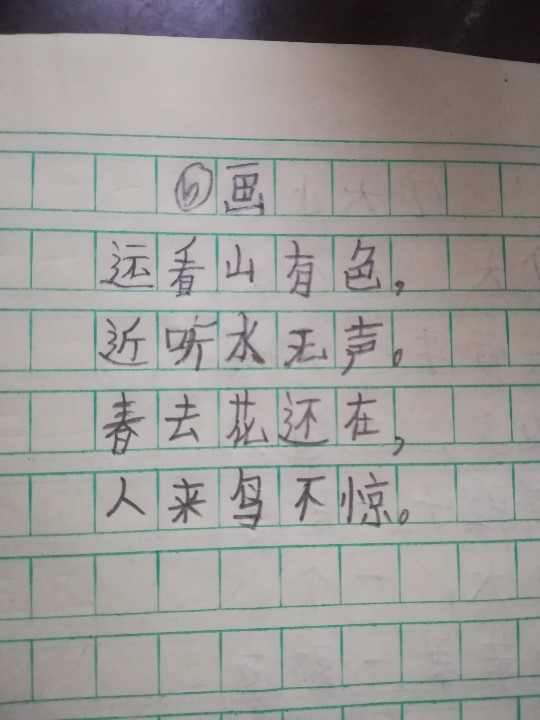 ⑥画
远看山有色，
近听水无声。
春去花还在，
人来鸟不惊。